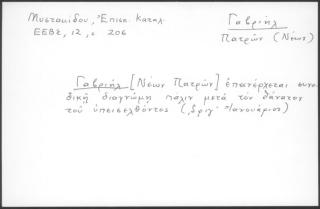 Μυστακίδου, Ἐπισκ. Κατάλ.
ΕΕΒΣ, 12, σ 206
Γαβριήλ
Πατρῶν (Νέων)
Γαβριήλ [Νέων Πατρῶν] ἐπανέρχεται συνο-
δικῇ διαγνώμῃ πάλιν μετὰ τὸν θάνατον
τοῦ ὑπεισελθόντος (͵αφιγ' Ἰανουάριος)